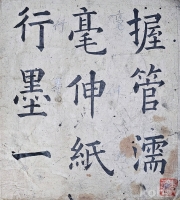 握管濡
毫伸紙
行墨一